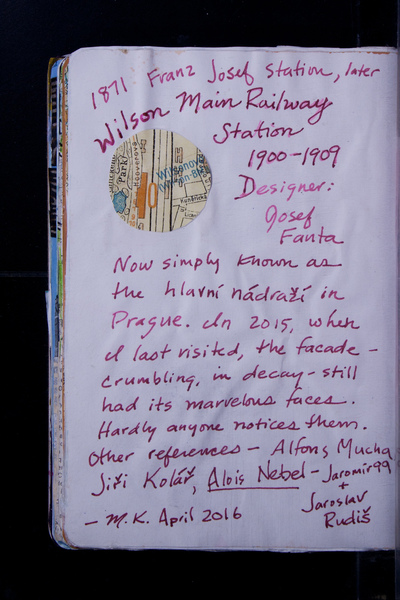 1871 Franz Josef Station, later
Wilson Main Railway
Station
1900-1909
Designer:
Josef
Fanta
Park
Hooverova
Wilsonovo
Now simply known as
the hlavní nádraží in
Prague. In 2015, when
I last visited, the facade -
crumbling, in decay - still
had its marvelous faces.
Hardly anyone notices them.
Other references - Alfons Mucha
Jiří Kolář, Alois Nebel - Jaromir99
+
Jaroslav
Rudiš
- M.K. April 2016